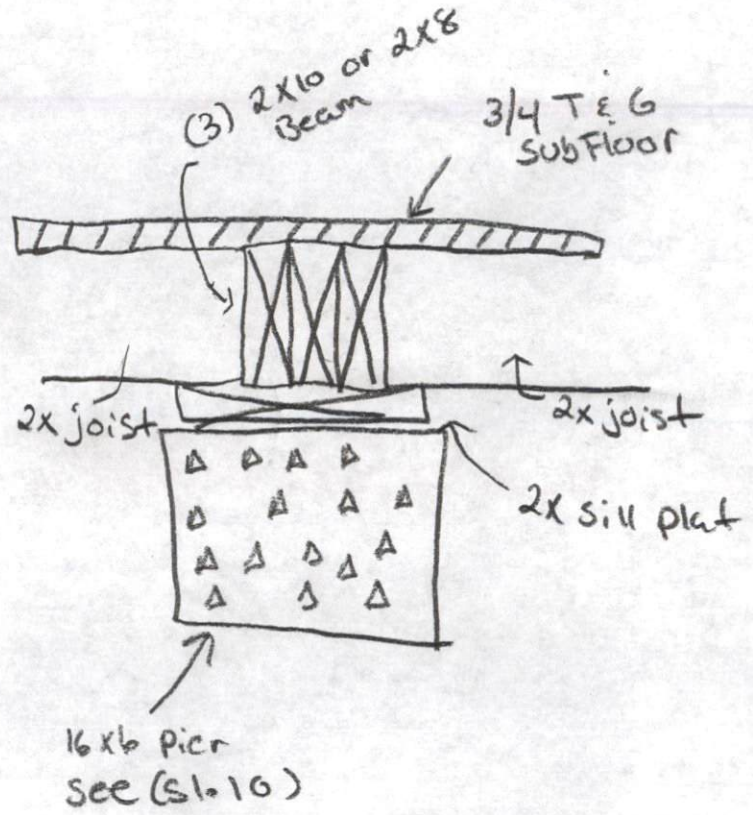 (3) 2x10 or 2x8
Beam
3/4 T & G
SubFloor
2x joist
2x joist
2x sill plat
16x6 pier
see (S1.10)